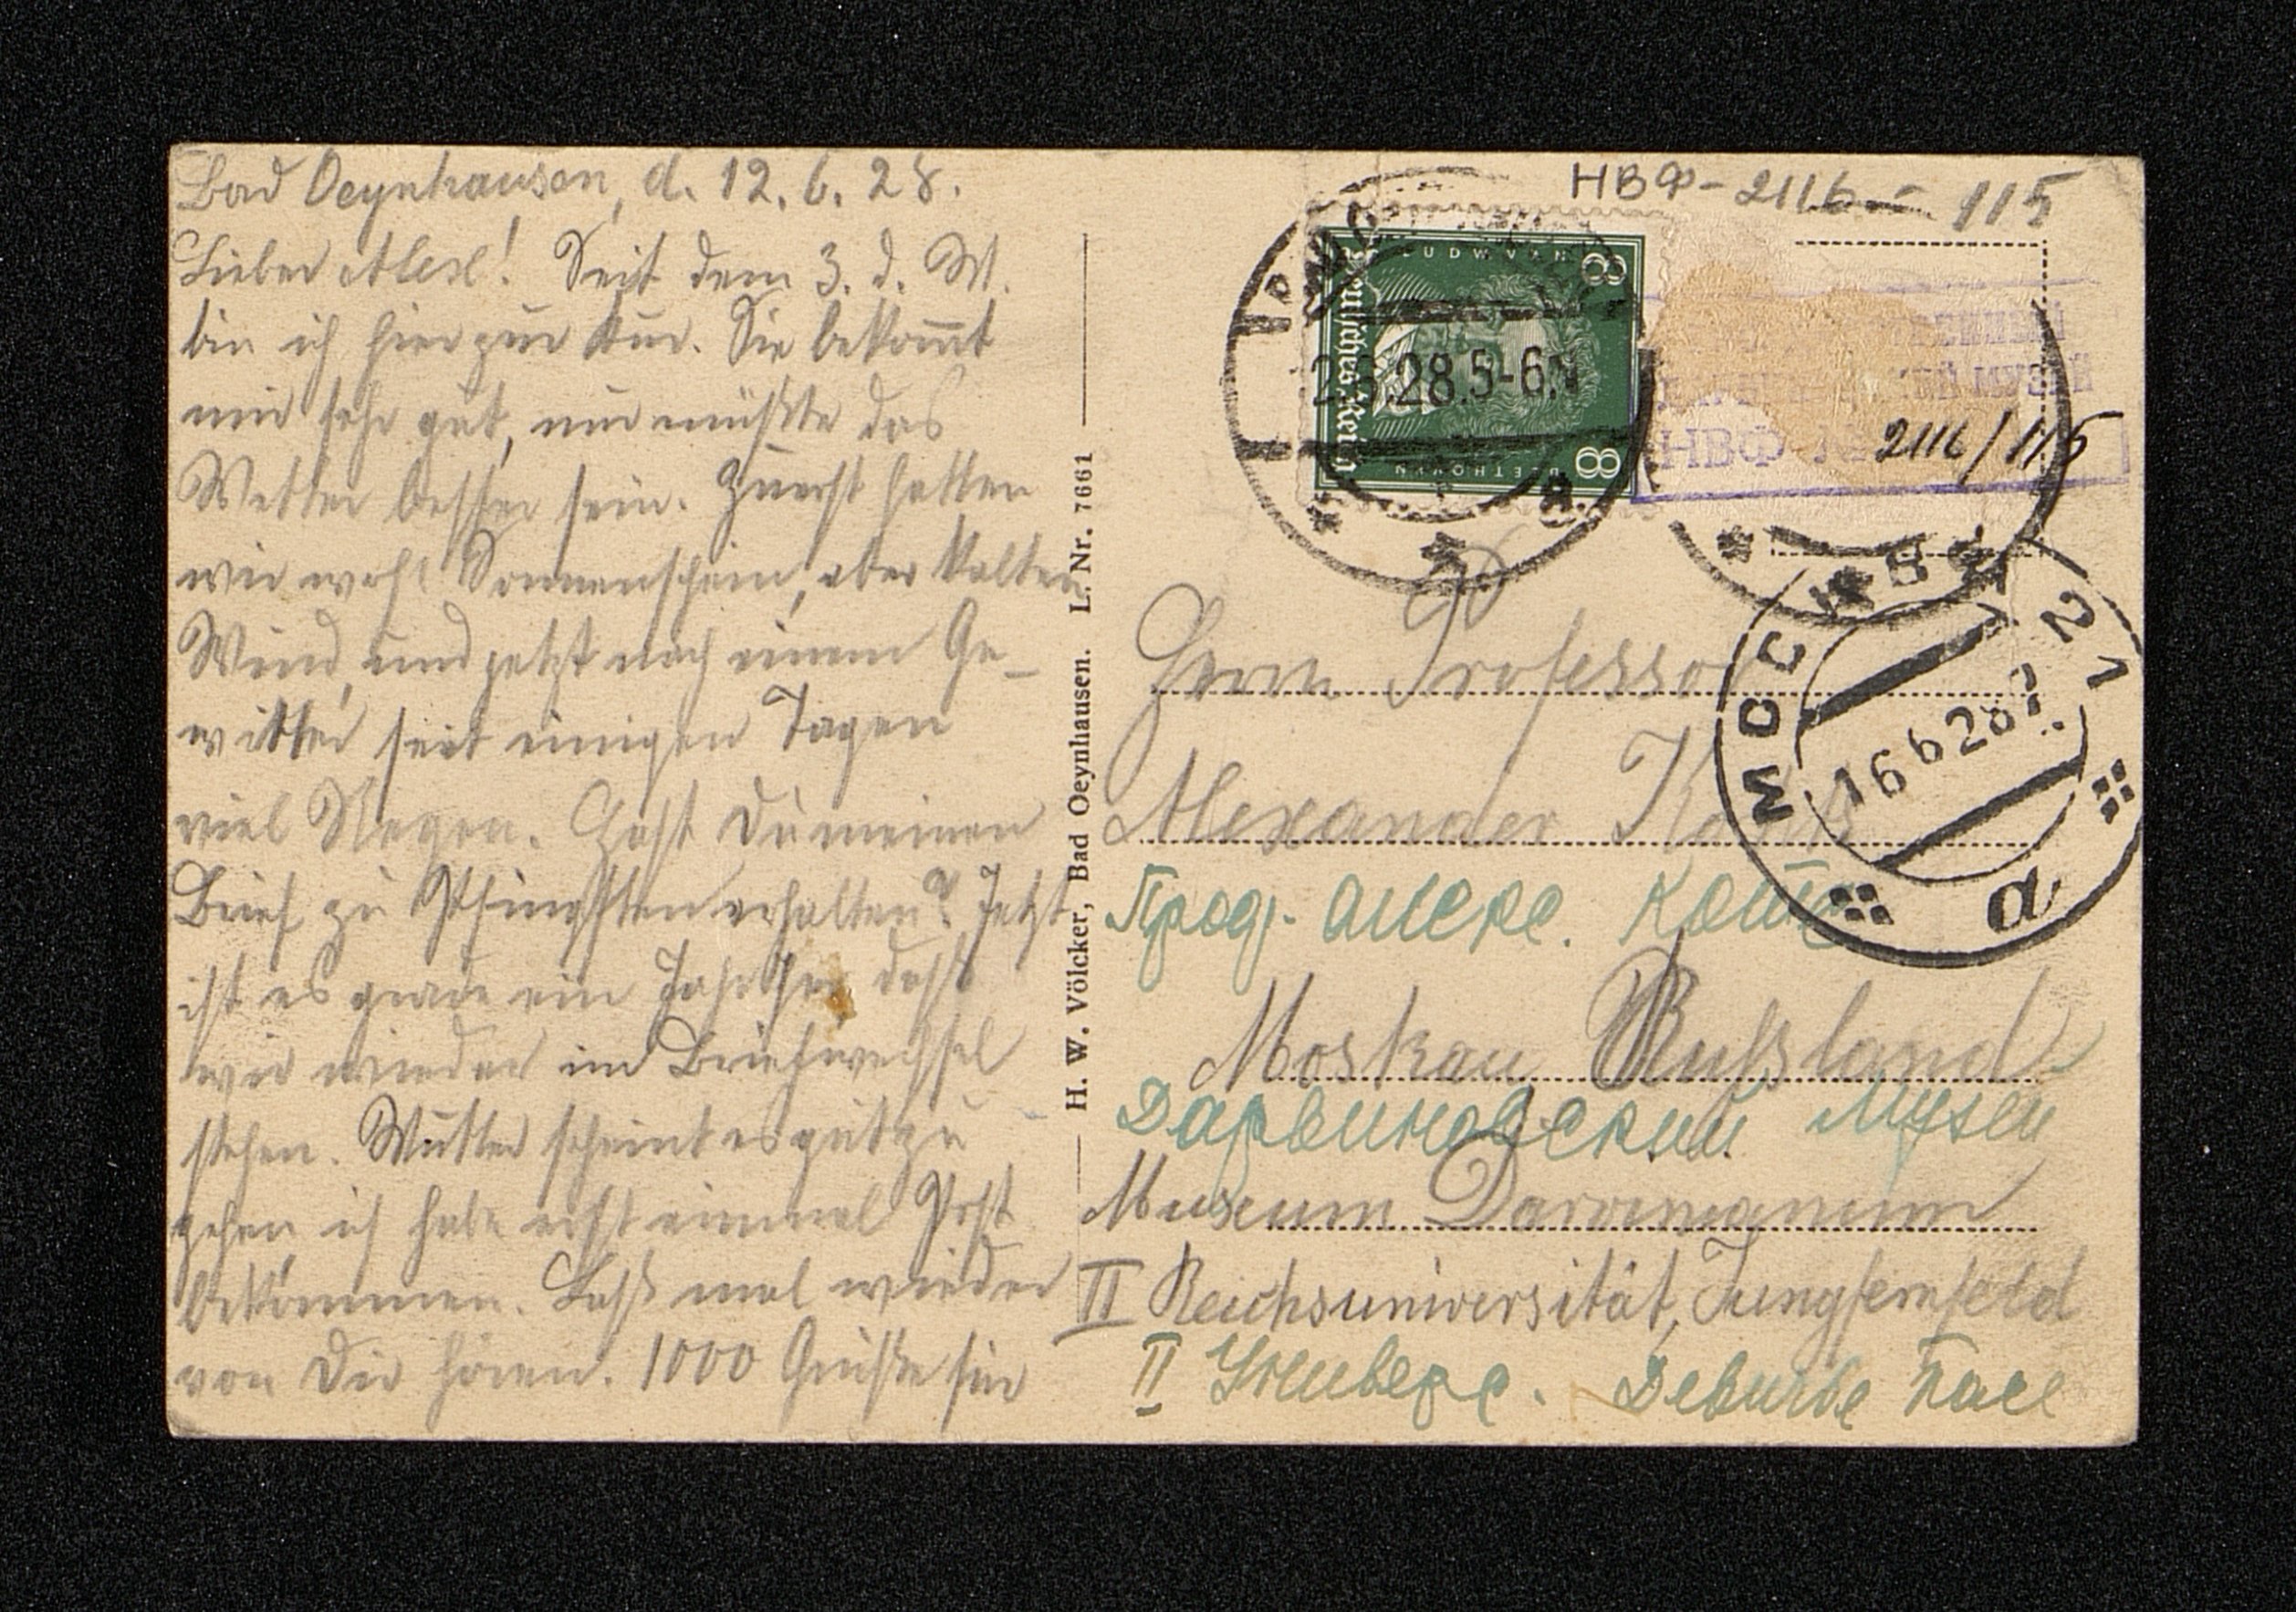 Bad Oeynhausen, d. 12. 6. 28.
Lieber Alex! Seit dem 3. d. M.
bin ich hier zur Kur. Sie bekom̅t
mir sehr gut, nur müßte das
Wetter besser sein. Zuerst hatten
wir wohl Sonnenschein, aber kalten
Wind, und jetzt nach einem Ge-
witter seit einigen Tagen
viel Regen. Hast Du meinen
Brief zu Pfingsten erhalten? Jetzt
ist es grade ein Jahr her, daß
wir wieder im Briefwechsel
stehen. Mutter scheint es gut zu
gehen, ich habe erst einmal Post
bekommen. Laß mal wieder
von Dir hören. 1000 Grüße für
H. W. Völcker, Bad Oeynhausen. L. Nr. 7661
НВФ-2116-115
LUDW.VAN
Deutsches Reich
8
8
BEETHOVEN
2.6.28.5-6N
НВФ № 2116/115
МОСКВА
16 6 28
а
Herrn Professor
Alexander Kohts
Проф. Алекс. Котс
Moskau Rußland
Дарвиновский Музей
Museum Darwinianum
II Reichsuniversität, Jungfernfeld
II Универс. Девичье Поле